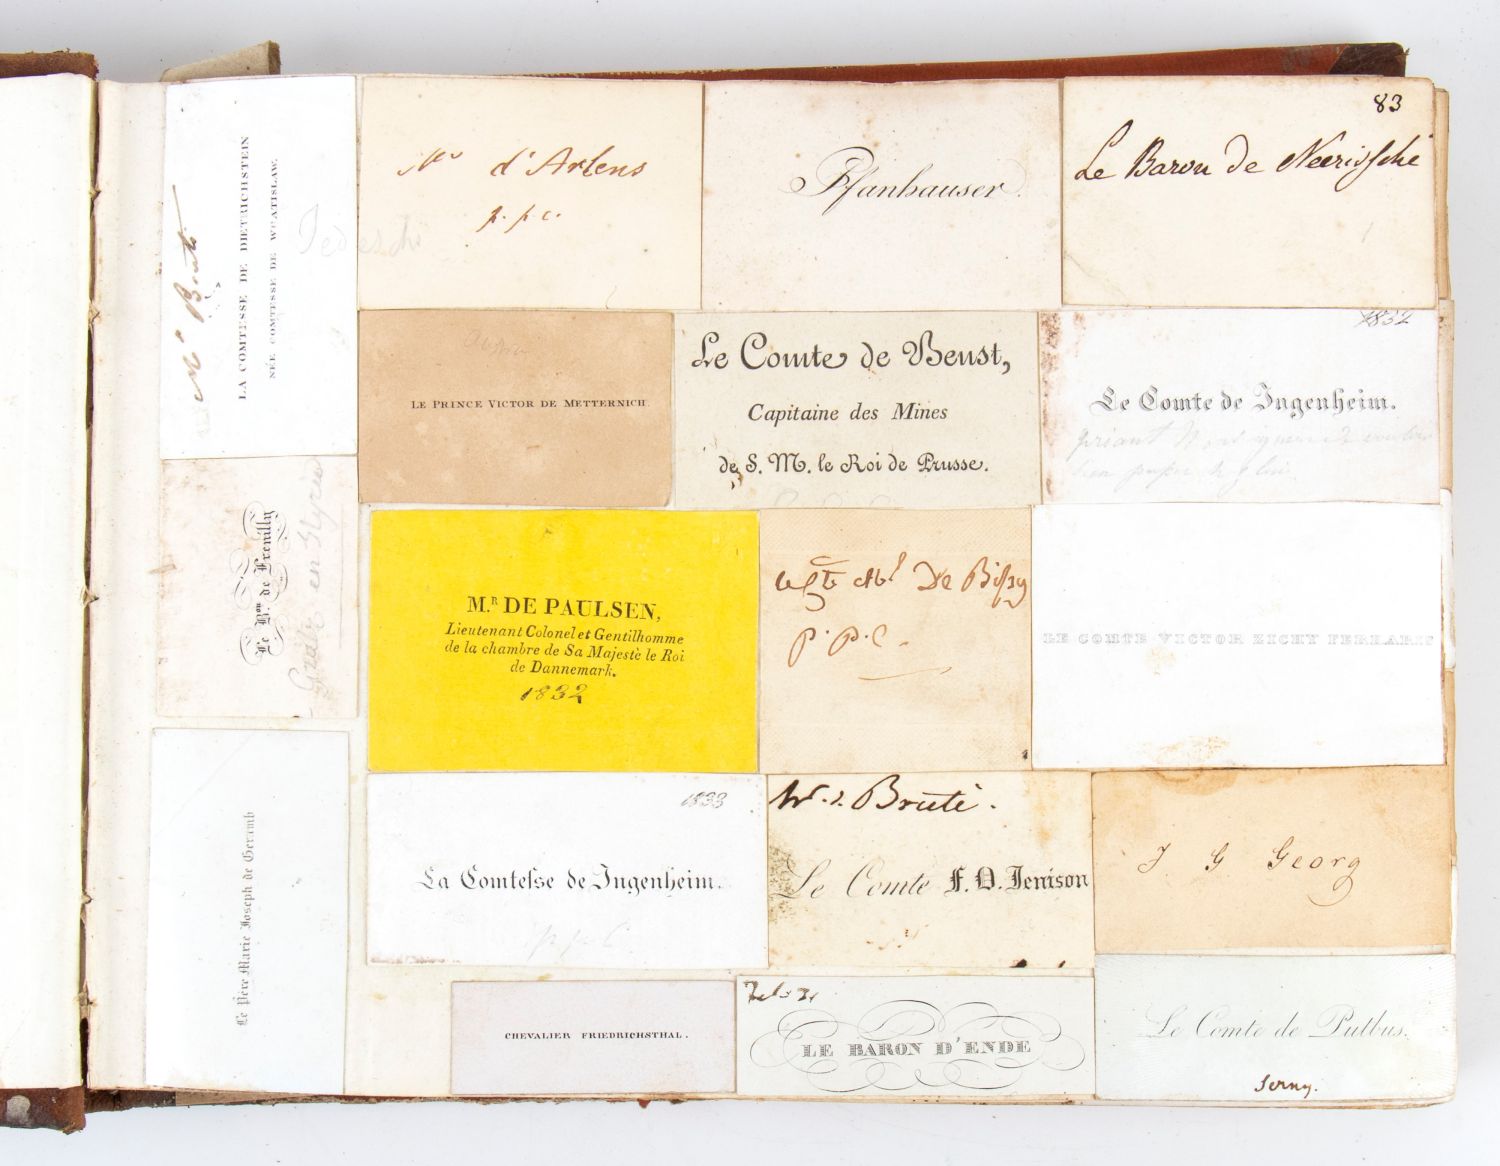 83
LA COMTESSE DE DIETRICHSTEIN
NÉE COMTESSE DE WRATISLAW.
d'Artens
p. p. c.
Pfanhauser.
Le Baron de Neerissche
LE PRINCE VICTOR DE METTERNICH
Le Comte de Beust,
Capitaine des Mines
de S. M. le Roi de Prusse.
1832
Le Comte de Ingenheim.
priant
Le Bon. de Frenilly
en Styrie
M.R DE PAULSEN,
Lieutenant Colonel et Gentilhomme
de la chambre de Sa Majesté le Roi
de Dannemark.
1832
De Bissy
P. P. C.
LE COMTE VICTOR ZICHY FERRARIS
Le Père Marie Joseph de Geramb
1833
La Comtesse de Ingenheim.
p p C.
Bruti.
Le Comte F. D. Jenison
J G Georg
CHEVALIER FRIEDRICHSTHAL.
LE BARON D'ENDE
Le Comte de Putbus.